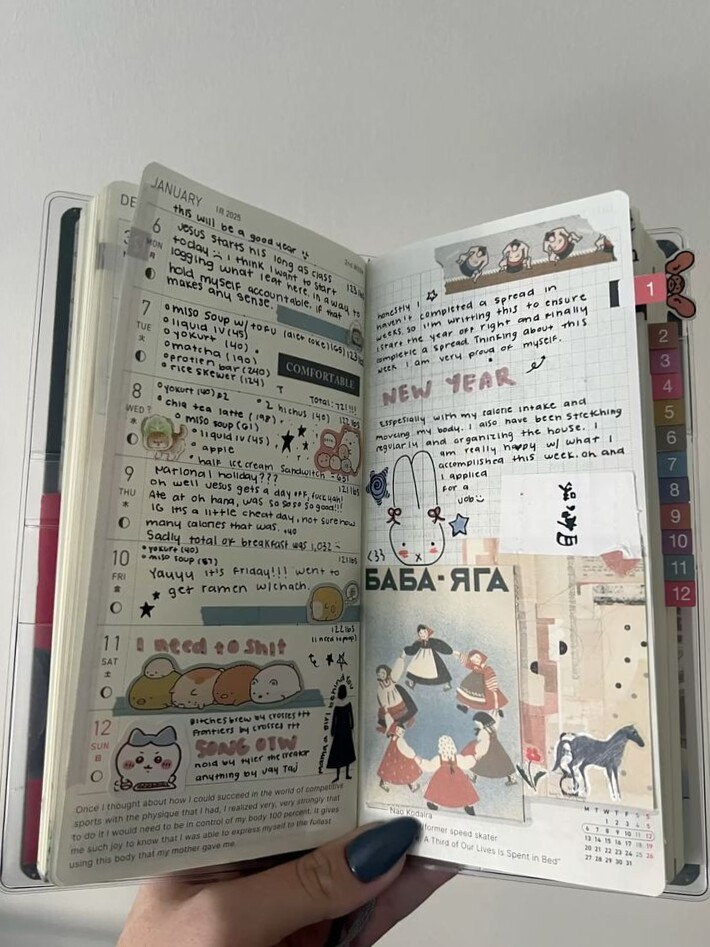 JANUARY
1月 2025
this will be a good year
6
MON
Jesus starts his long as class
today I think I want to start
logging what I eat here in a way to
hold myself accountable. if that
makes any sense.
7
TUE
火
miso soup w/tofu (diet coke)
liquid IV (45)
yokurt (40)
matcha (190)
protien bar (240)
rice skewer (124)
COMFORTABLE
TOTAL: 721!!!
8
WED
水
yokurt (40) #2
2 hichus (40)
122 lbs
chia tea latte (198)
miso soup (61)
liquid IV (45)
apple
half ice cream sandwitch - 65
9
THU
木
National holiday???
oh well Jesus gets a day off, fuck yah!
121 lbs
Ate at oh hana, was so so so so good!!!
IG its a little cheat day, not sure how
many calories that was.
Sadly total of breakfast was 1,032
10
FRI
金
yokurt (40)
miso soup (87)
121 lbs
Yayyy it's Friday!!! went to
get ramen w/chach
11
SAT
土
122 lbs
(I need to poop)
I need to shit
12
SUN
日
Bitches brew by crosses †††
Frontiers by crosses †††
SONG OTW
noid by tyler the creator
anything by Jay Taj
mama a girl behind you
Once I thought about how I could succeed in the world of competitive
sports with the physique that I had, I realized very, very strongly that
to do it I would need to be in control of my body 100 percent. It gives
me such joy to know that I was able to express myself to the fullest
using this body that my mother gave me.
honestly I
haven't completed a spread in
weeks, so I'm writting this to ensure
I start the year off right and finally
complete a spread. Thinking about this
week I am very proud of myself.
NEW YEAR
Esspesially with my calorie intake and
moving my body. I also have been stretching
regularly and organizing the house. I
am really happy w/ what I
accomplished this week. oh and
I applied
for a
job
<33
БАБА-ЯГА
Nao Kodaira
former speed skater
A Third of Our Lives Is Spent in Bed"
M T W T F S S
1 2 3 4 5
6 7 8 9 10 11 12
13 14 15 16 17 18 19
20 21 22 23 24 25 26
27 28 29 30 31
1
2
3
4
5
6
7
8
9
10
11
12